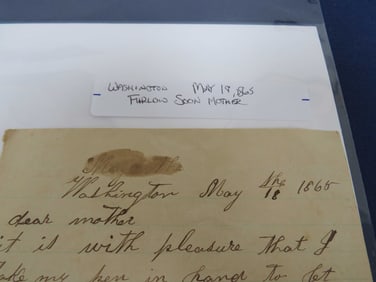 WASHINGTON MAY 18, 1865
FURLOW SOON MOTHER
Washington May 18 1865
dear mother
it is with pleasure that I
take my pen in hand to let